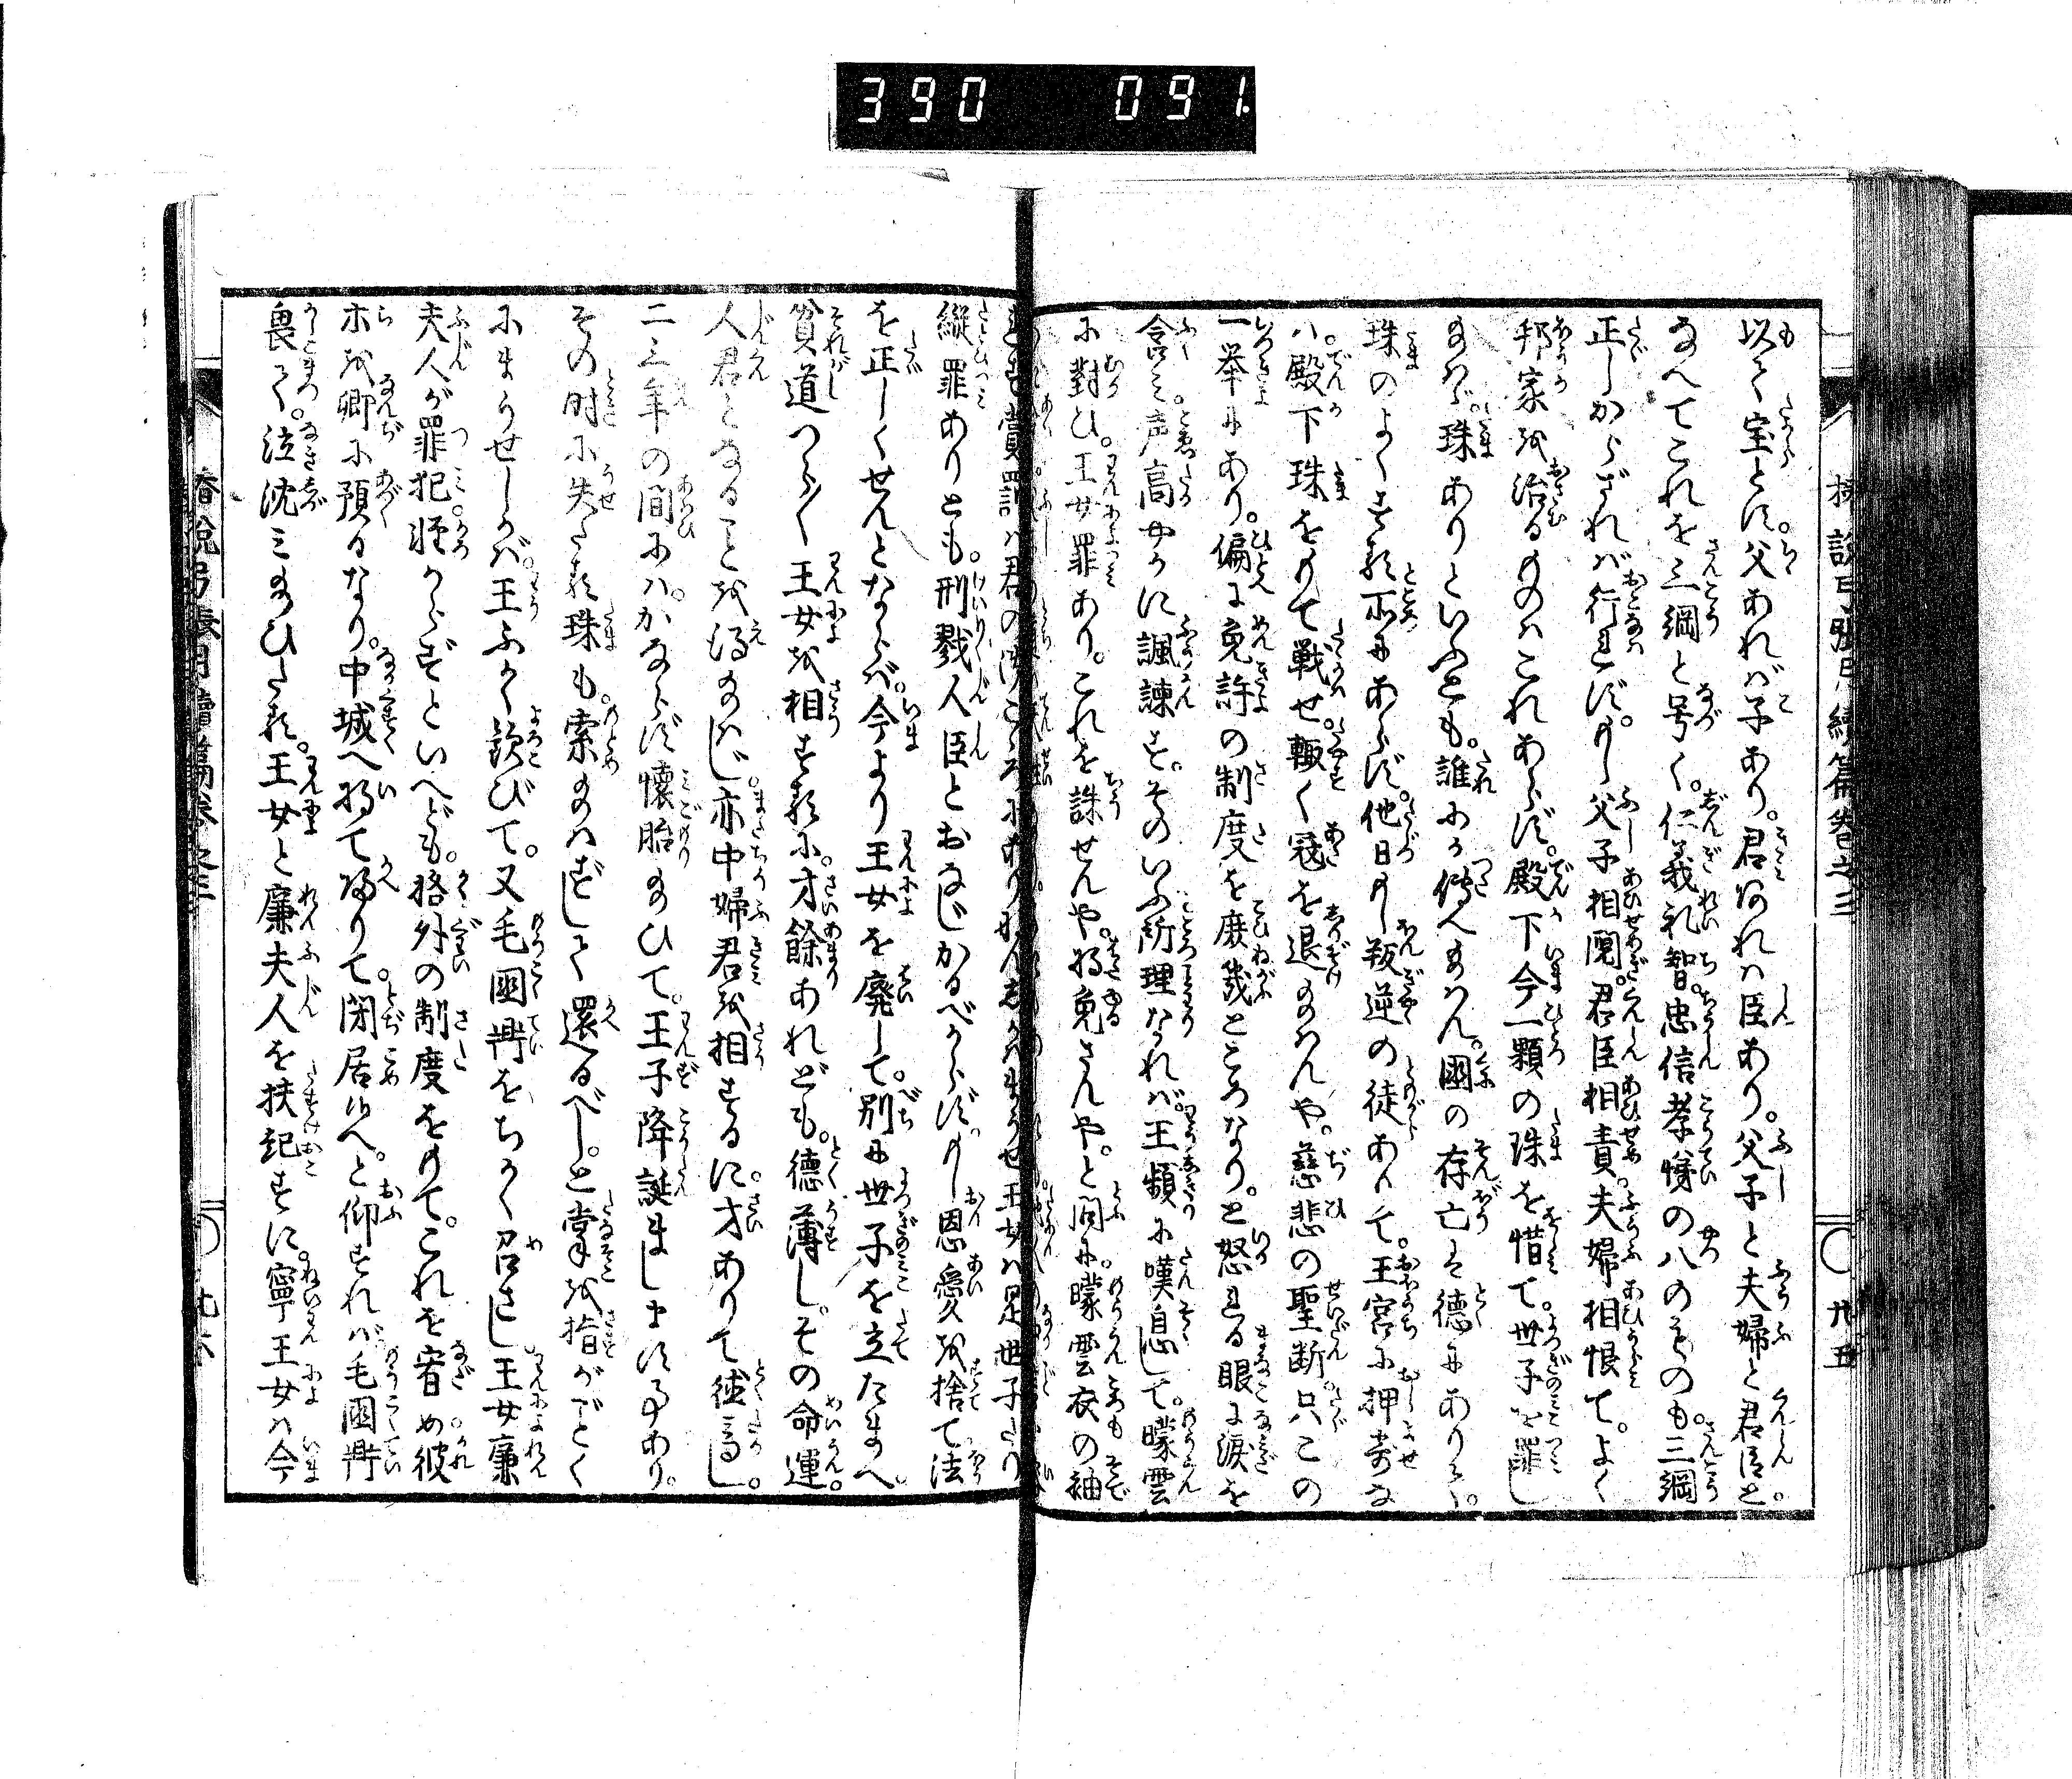 390 091
椿説弓張月續篇卷之三 〇 廿五
以て宝とす。父あれば子あり。君あれは臣あり。父子と夫婦と君臣と。
なへてこれを三綱と号く。仁義礼智。忠信孝悌の八のもの。も三綱
正しからざれば行れず。もし父子相鬩。君臣相責。夫婦相恨て。よく
邦家を治るものはこれあらず。殿下今一顆の珠を惜て。世子を罪し
給はゞ。珠ありといふとも。誰にか傳へ給はん。國の存亡は徳にありて。
珠のよくする所にあらず。他日もし叛逆の徒あつて。王宮に押寄な
ば。殿下珠をもて戦せ。輙く冦を退給はんや。慈悲の聖断。只この
一挙にあり。偏に免許の制度を庶幾ところなり。と怒れる眼に涙を
含み。声高やかに諷諫す。そのいふ所理なれば。王頻に嘆息して。矇雲
に對ひ。王女罪あり。これを誅せんや。将免さんや。と問に。矇雲衣の袖
縦罪ありとも。刑戮人臣とおなじかるべからず。もし恩愛を捨て法
を正しくせんとならば。今より王女を廃して。別に世子を立たまへ。
貧道つら〱王女を相するに。才餘あれども。徳薄し。その命運。
人君となることを得給はじ。亦中婦君を相するに。才ありて徳高し。
二三年の間には。かならず懐胎給ひて。王子降誕ましますことあり。
その时に失たる珠も。索め給はずして還るべし。と掌を指がごとく
にまうせしかば。王ふかく歓びて。又毛國鼎をちかく召さし。王女廉
夫人が罪犯。軽からずといへども。格外の制度をもて。これを宥め彼
ホを卿に預るなり。中城へ将て帰りて。閉居候へ。と仰すれば。毛國鼎
畏て。泣沈み給ひたる。王女と廉夫人を扶起すに。寧王女は今
椿説弓張月續篇卷之三 〇 廿六